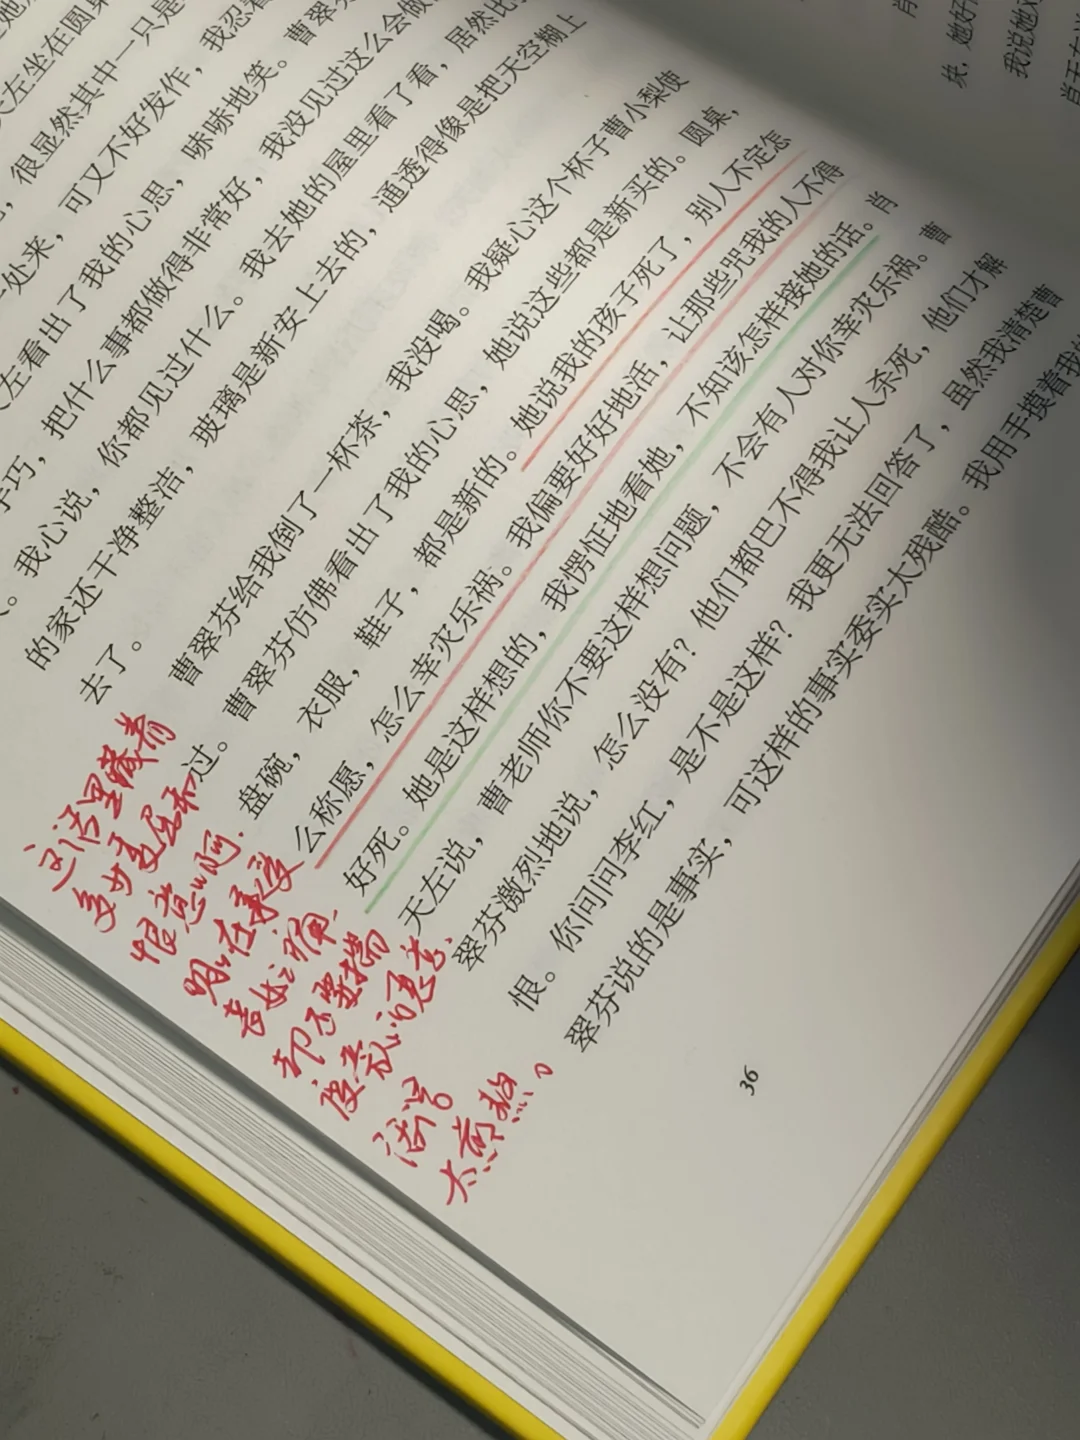 天左坐在圆桌
很显然其中一只是
处来，可又不好发作，我忍着
左看出了我的心思，哧哧地笑。曹翠芬
手巧，把什么事都做得非常好，我没见过这么会做
。我心说，你都见过什么。我去她的屋里看了看，居然比
的家还干净整洁，玻璃是新安上去的，通透得像是把天空糊上
去了。
曹翠芬给我倒了一杯茶，我没喝。我疑心这个杯子曹小梨使
过。曹翠芬仿佛看出了我的心思，她说这些都是新买的。圆桌，
盘碗，衣服，鞋子，都是新的。她说我的孩子死了，别人不定怎
么称愿，怎么幸灾乐祸。我偏要好好地活，让那些咒我的人不得
好死。她是这样想的，我愣怔地看她，不知该怎样接她的话。肖
天左说，曹老师你不要这样想问题，不会有人对你幸灾乐祸。曹
翠芬激烈地说，怎么没有？他们都巴不得我让人杀死，他们才解
恨。你问问李红，是不是这样？我更无法回答了，虽然我清楚曹
翠芬说的是事实，可这样的事实委实太残酷。我用手摸着我
36
这话里藏着
多少委屈和
恨意啊.
明明在承受
着如此痛
却还要揣
度旁人的恶意
活得
太煎熬。
块，她好
我说她
肖天左